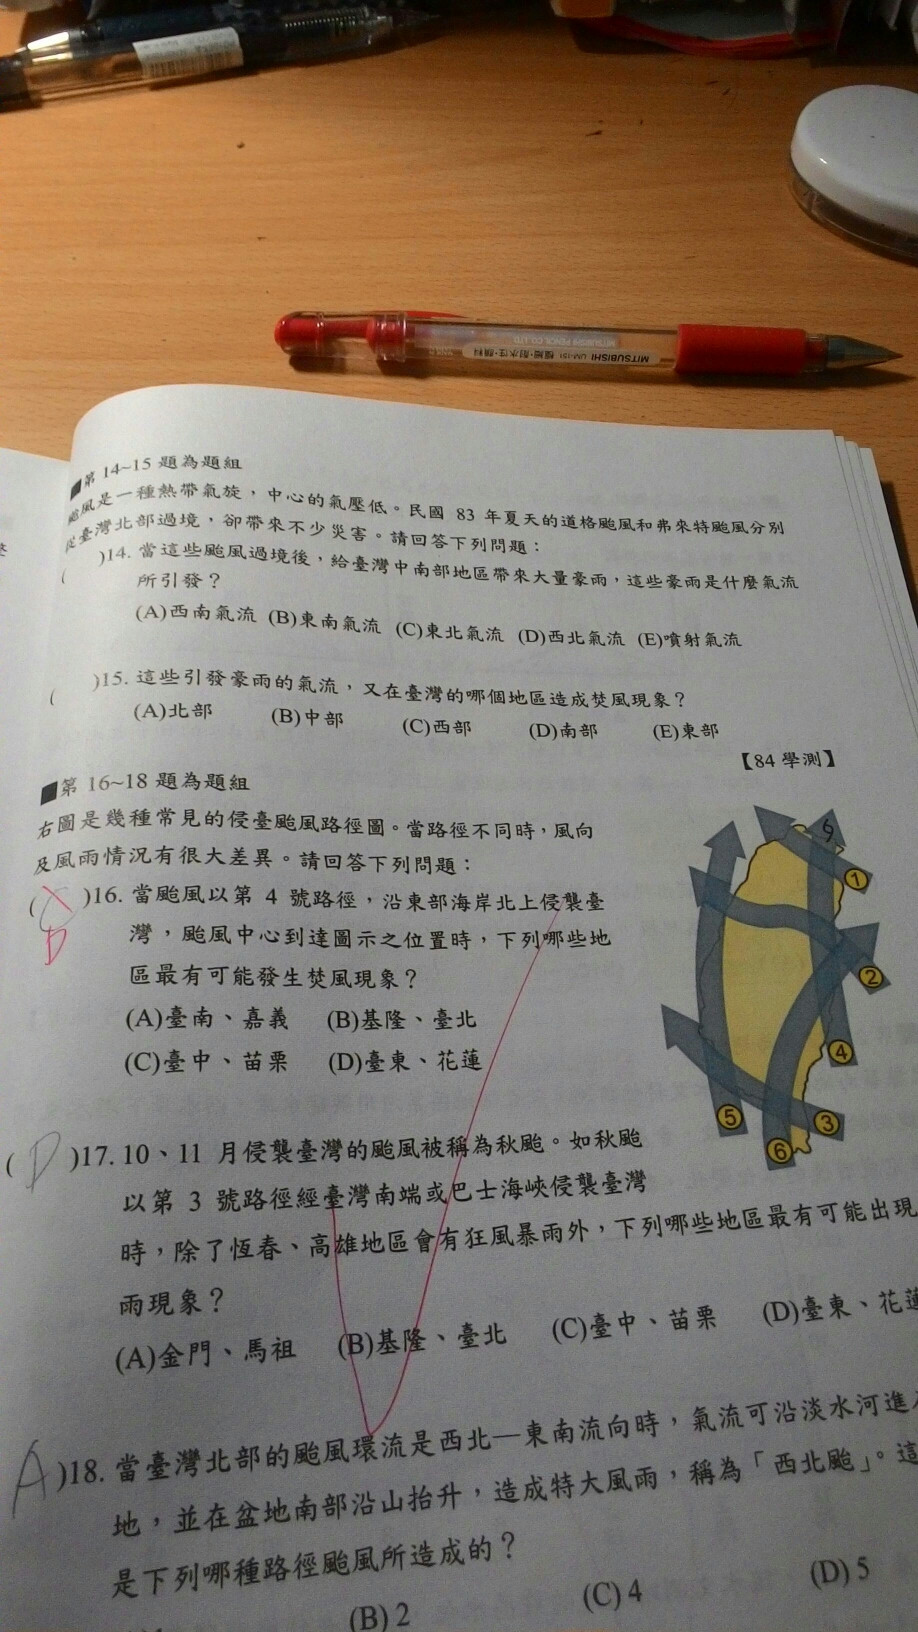 MITSUBISHI UM-151 極細・耐水性・顏料
MITSUBISHI PENCIL CO., LTD.
■第 14~15 題為題組
颱風是一種熱帶氣旋，中心的氣壓低。民國 83 年夏天的道格颱風和弗來特颱風分別
從臺灣北部過境，卻帶來不少災害。請回答下列問題：
( )14. 當這些颱風過境後，給臺灣中南部地區帶來大量豪雨，這些豪雨是什麼氣流
所引發？
(A)西南氣流 (B)東南氣流 (C)東北氣流 (D)西北氣流 (E)噴射氣流
( )15. 這些引發豪雨的氣流，又在臺灣的哪個地區造成焚風現象？
(A)北部 (B)中部 (C)西部 (D)南部 (E)東部
【84 學測】
■第 16~18 題為題組
右圖是幾種常見的侵臺颱風路徑圖。當路徑不同時，風向
及風雨情況有很大差異。請回答下列問題：
( D )16. 當颱風以第 4 號路徑，沿東部海岸北上侵襲臺
灣，颱風中心到達圖示之位置時，下列哪些地
區最有可能發生焚風現象？
(A)臺南、嘉義 (B)基隆、臺北
(C)臺中、苗栗 (D)臺東、花蓮
1
2
4
5
3
6
( D )17. 10、11 月侵襲臺灣的颱風被稱為秋颱。如秋颱
以第 3 號路徑經臺灣南端或巴士海峽侵襲臺灣
時，除了恆春、高雄地區會有狂風暴雨外，下列哪些地區最有可能出現
雨現象？
(A)金門、馬祖 (B)基隆、臺北 (C)臺中、苗栗 (D)臺東、花蓮
A )18. 當臺灣北部的颱風環流是西北—東南流向時，氣流可沿淡水河進
地，並在盆地南部沿山抬升，造成特大風雨，稱為「西北颱」。這
是下列哪種路徑颱風所造成的？
(B) 2 (C) 4 (D) 5